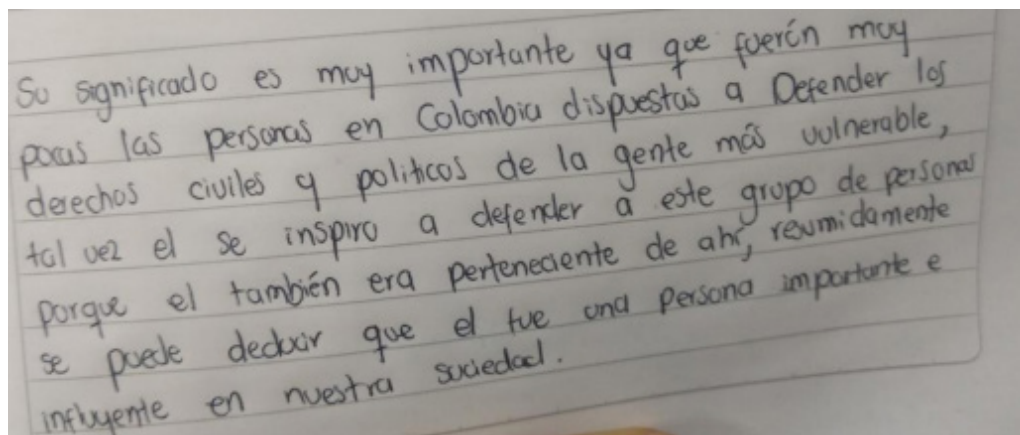 Su significado es muy importante ya que fuerón muy
pocas las personas en Colombia dispuestas a Defender los
derechos civiles y politicos de la gente más vulnerable,
tal vez el se inspiro a defender a este grupo de personas
porque el también era perteneciente de ahí, resumidamente
se puede deducir que el fue una persona importante e
influyente en nuestra sociedad.